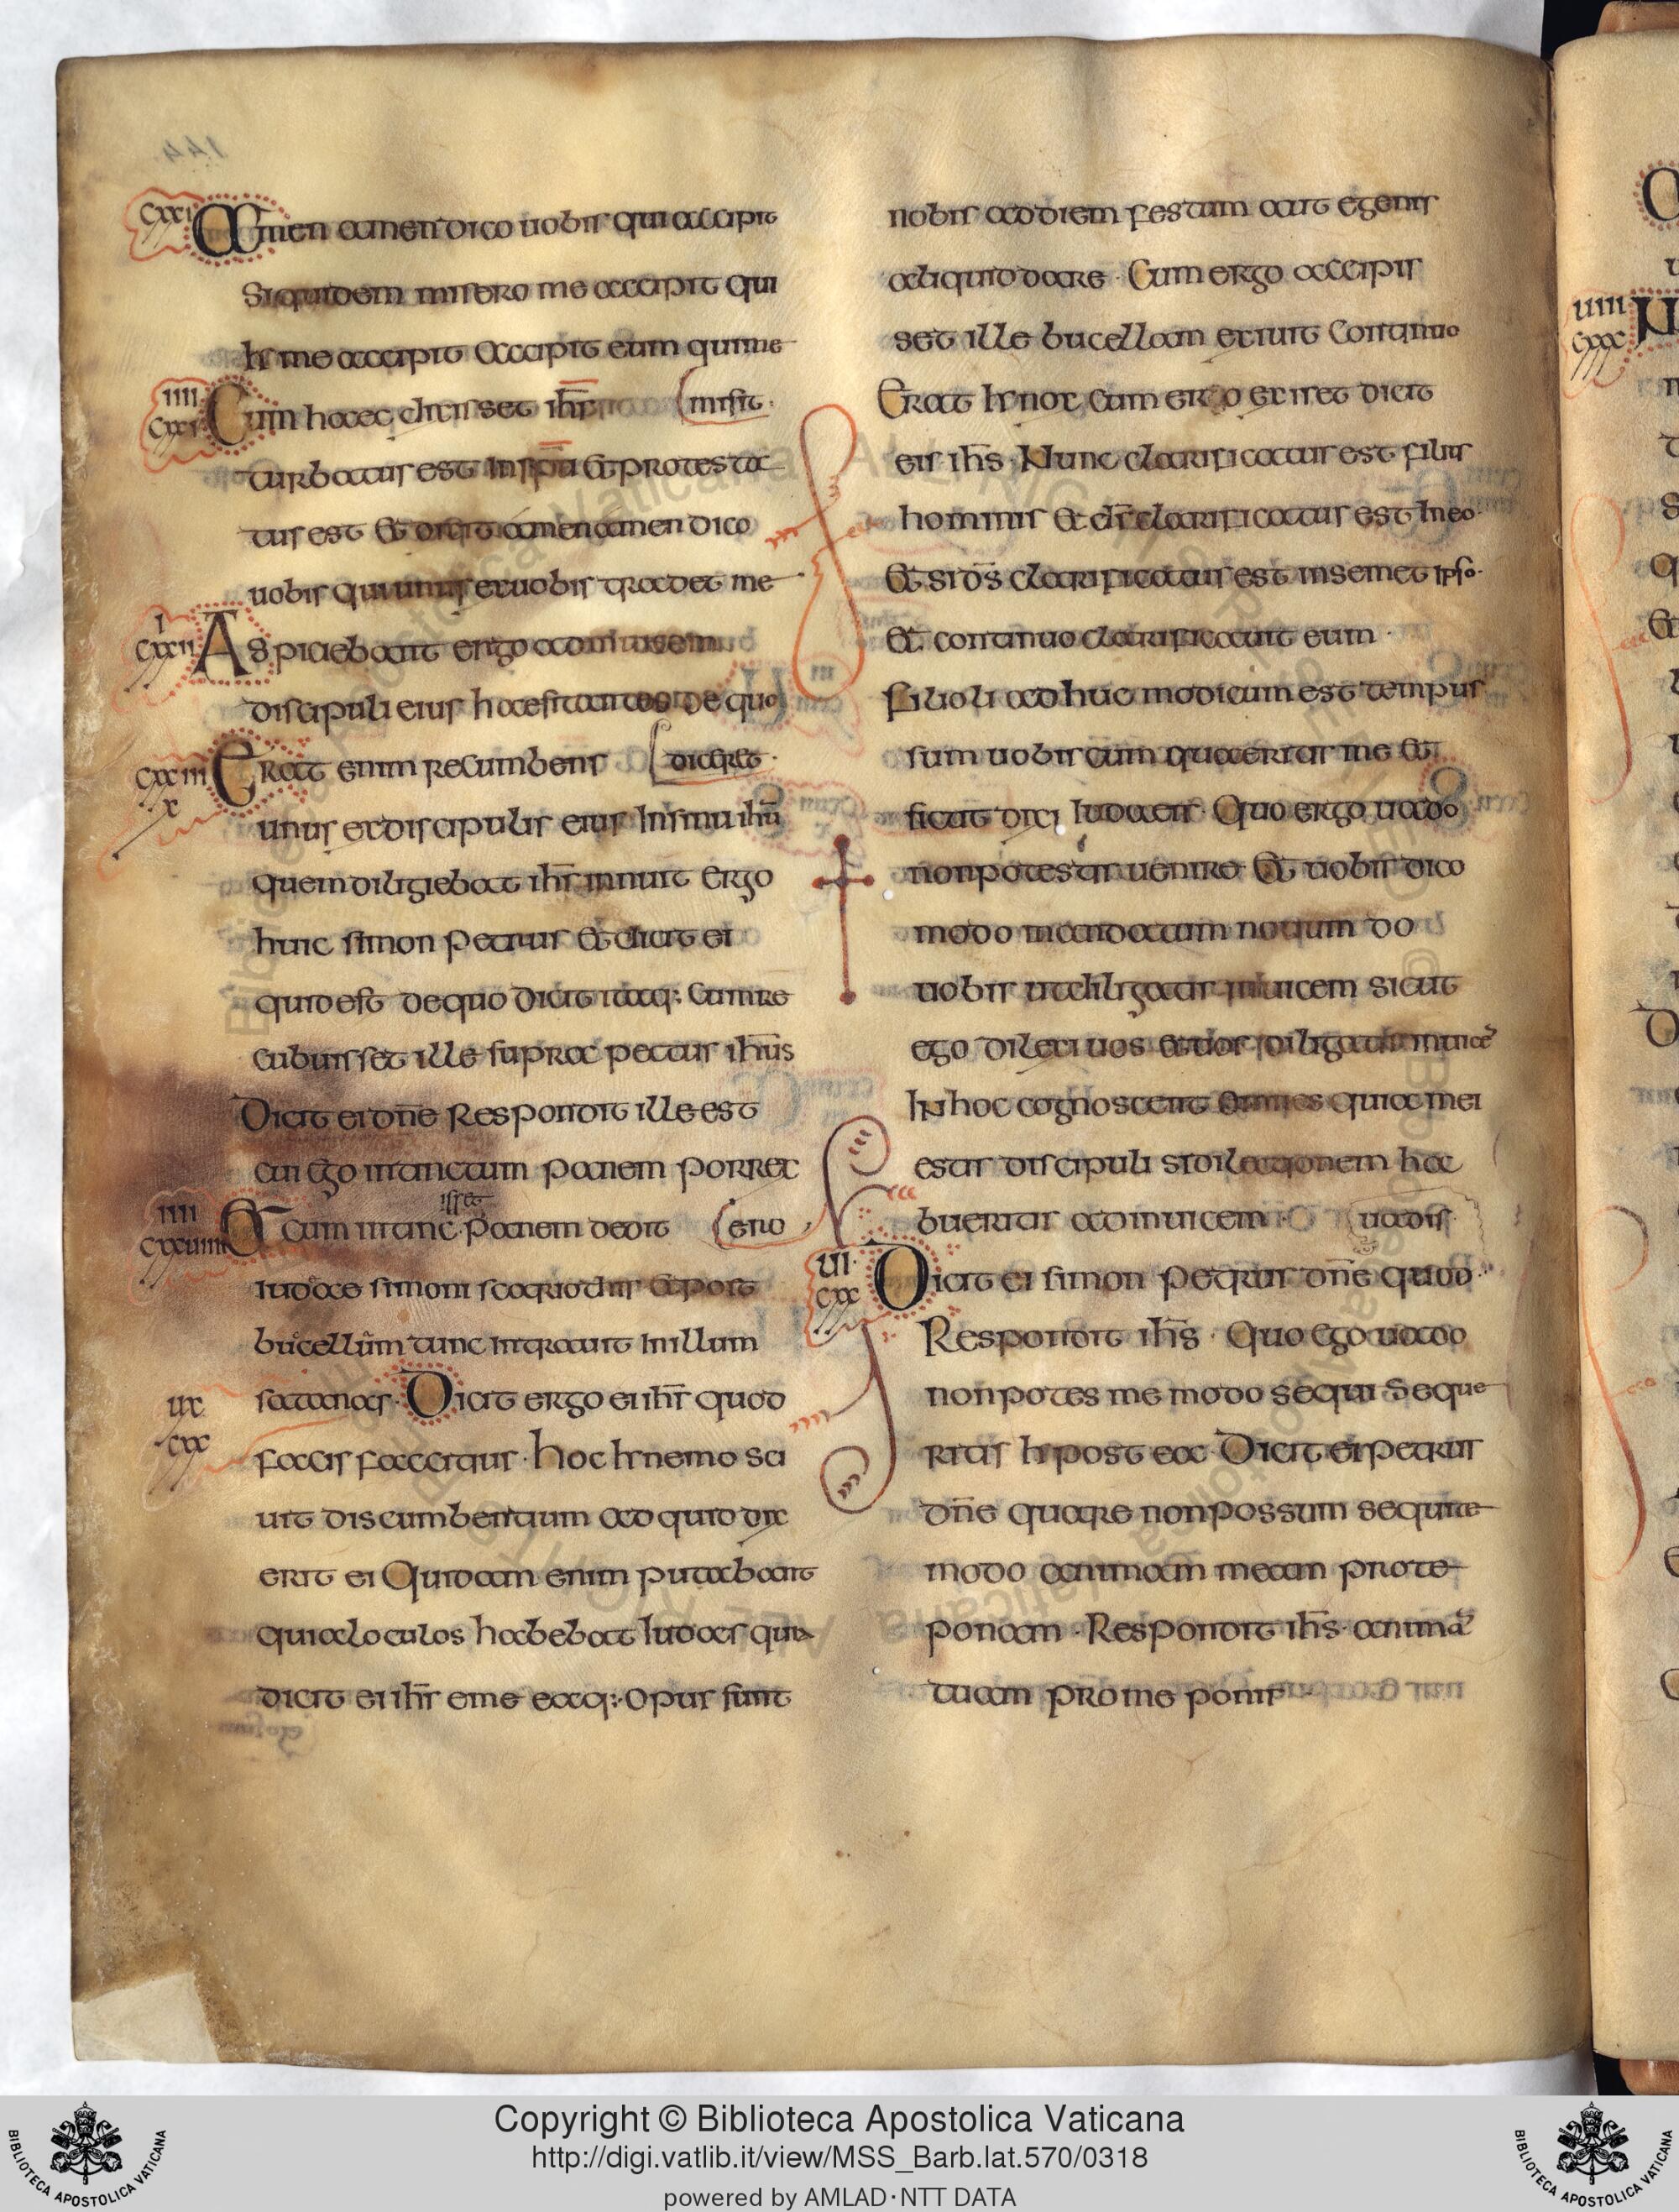 144
cxxi
Amen amen dico uobis qui accipit
Siquidem misero me accipit qui
hr me accipit Accipit eum qui me
misit·
iiii
cxxi
Cum haec dixisset ihs
turbatus est In spu Et protesta
tus est Et dixit amen amen dico
uobis qui unus ex uobis tradet me
i
cxxii
Aspiciebant ergo ad inuicem
discipuli eius haesitantes de quo
diceret·
cxxiii
x
Erat enim recumbens
unus ex discipulis eius In sinu ihu
quem diligiebat ihs innuit Ergo
huic simon Petrus Et dicit ei
quid est de quo dicit itaq; Cum re
cubuisset ille supra pectus ihus
Dicit ei dne Respondit ille est
cui ego intinctum panem porrex
ero
iiii
cxxuiiii
Et cum intinc isset panem dedit
Iudae simoni scariothis Et post
bucellum tunc introiuit In illum
satanas· Dicit ergo ei ihs quod
uix
cxx
facis fac citius· hoc hr nemo sci
uit discumbentium ad quid dix
erit ei Quidam enim putabant
quia loculos habebat Iudas quia
dicit ei ihs eme eaq; Opus sunt
nobis ad diem festum aut egenis
aliquid dare· Cum ergo accepis
set ille bucellam exiuit Continuo
Erat hr nox Cum ergo exiret dicit
eis ihs· Nunc clarificatus est filius
hominis Et ds clarificatus est In eo·
Et si ds clarificatus est in semet ipso·
Et continuo clarificauit eum·
Filioli ad huc modicum est tempus
sum uobis cum quaeritis me Et
sicut dixi Iudaeis· Quo ergo uado
non potestis uenire Et uobis dico
modo mandatum nouum do
uobis ut diligatis inuicem sicut
ego dilexi uos et uos diligatis inuice
In hoc cognoscent Omnes quia mei
estis discipuli si dilectionem ha
bueritis ad inuicem
uadis
ui·
cxx
Dicit ei simon Petrus dne quod
Respondit ihs· Quo Ego uado
non potes me modo sequi Seque
ritis hr post ea· Dicit ei petrus
dne quare non possum sequi te
modo animam meam pro te
ponam· Respondit ihs· anima
tuam pro me ponis
uiii
cxxx
Copyright © Biblioteca Apostolica Vaticana
http://digi.vatlib.it/view/MSS_Barb.lat.570/0318
powered by AMLAD·NTT DATA
BIBLIOTECA APOSTOLICA VATICANA
BIBLIOTECA APOSTOLICA VATICANA